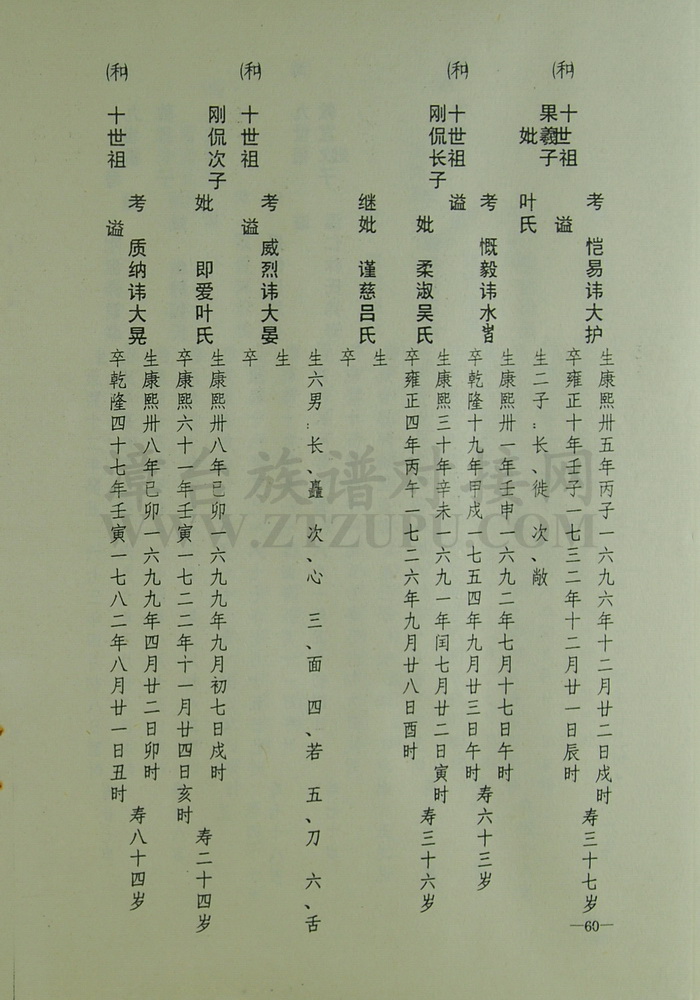 ㈣ 十世祖 考 谥 恺易讳大护 生康熙卅五年丙子一六九六年十二月廿二日戌时 寿三十七岁
卒雍正十年壬子一七三二年十二月廿一日辰时
果羲子 妣 叶氏 生二子：长、徙 次、敞
(和) 十世祖 考 谥 慨毅讳水 生康熙卅一年壬申一六九二年七月十七日午时 寿六十三岁
卒乾隆十九年甲戌一七五四年九月廿三日午时
刚侃长子 妣 柔淑吴氏 生康熙三十年辛未一六九一年闰七月廿二日寅时 寿三十六岁
卒雍正四年丙午一七二六年九月廿八日酉时
继妣 谨慈吕氏 生
卒
生六男：长、矗 次、心 三、面 四、若 五、刀 六、舌
(和) 十世祖 考 谥 威烈讳大晏 生
卒
刚侃次子 妣 即爱叶氏 生康熙卅八年己卯一六九九年九月初七日戌时 寿二十四岁
卒康熙六十一年壬寅一七二二年十一月廿四日亥时
(和) 十世祖 考 谥 质纳讳大晃 生康熙卅八年己卯一六九九年四月廿二日卯时 寿八十四岁
卒乾隆四十七年壬寅一七八二年八月廿一日丑时
—60—
漳台族谱对接网
WWW.ZTZUPU.COM